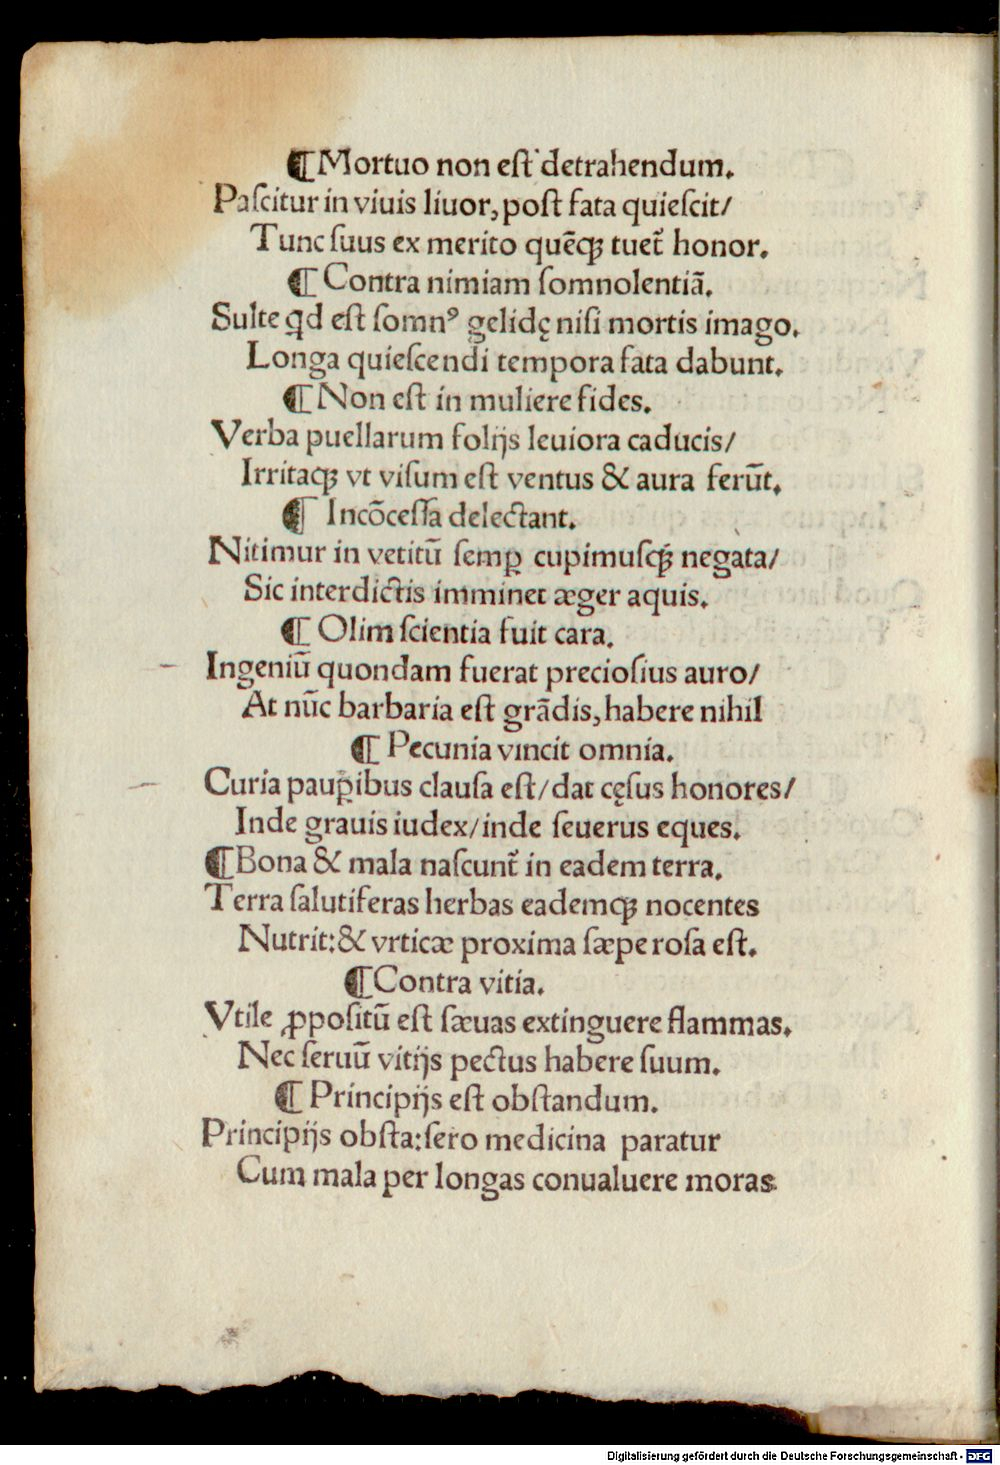 ¶ Mortuo non eſt detrahendum.
Paſcitur in viuis liuor, poſt fata quieſcit/
Tunc ſuus ex merito quēq̃ꝫ tuet̃ honor.
¶ Contra nimiam ſomnolentiā.
Sulte qd eſt ſomnꝰ gelidę niſi mortis imago.
Longa quieſcendi tempora fata dabunt.
¶ Non eſt in muliere fides.
Verba puellarum folijs leuiora caducis/
Irritaqꝫ vt viſum eſt ventus & aura ferūt.
¶ Incōceſſa delectant.
Nitimur in vetitū ſemꝑ cupimuſqꝫ negata/
Sic interdictis imminet æger aquis.
¶ Olim ſcientia fuit cara.
Ingeniū quondam fuerat precioſius auro/
At nūc barbaria eſt grādis, habere nihil
¶ Pecunia vincit omnia.
Curia pauꝑibus clauſa eſt/dat cęſus honores/
Inde grauis iudex/inde ſeuerus eques.
¶ Bona & mala naſcunt̃ in eadem terra.
Terra ſalutiferas herbas eademqꝫ nocentes
Nutrit:& vrticæ proxima ſæpe roſa eſt.
¶ Contra vitia.
Vtile ꝓpoſitū eſt ſæuas extinguere flammas.
Nec ſeruū vitijs pectus habere ſuum.
¶ Principijs eſt obſtandum.
Principijs obſta:ſero medicina paratur
Cum mala per longas conualuere moras.
Digitalisierung gefördert durch die Deutsche Forschungsgemeinschaft - DFG